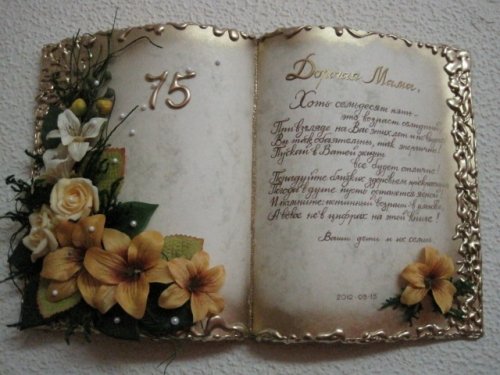 75
Дорогая Мама,
Хоть семьдесят пять -
это возраст солидный,
При взгляде на Вас этих лет и не видно!
Вы так обаятельны, так энергичны!
Пускай в Вашей жизни
все будет отлично!
Порадуйте близких здоровьем
Погода в душе пусть останется ясной!
И помните: истинный возраст в
А вовсе не в цифрах на этой книге!
Ваши дети и их семьи.
2012-03-15